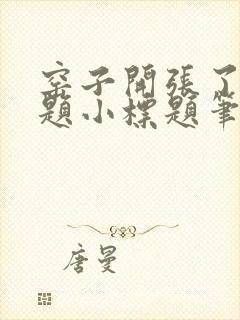 窑子開張了
題小標題筆
唐曼